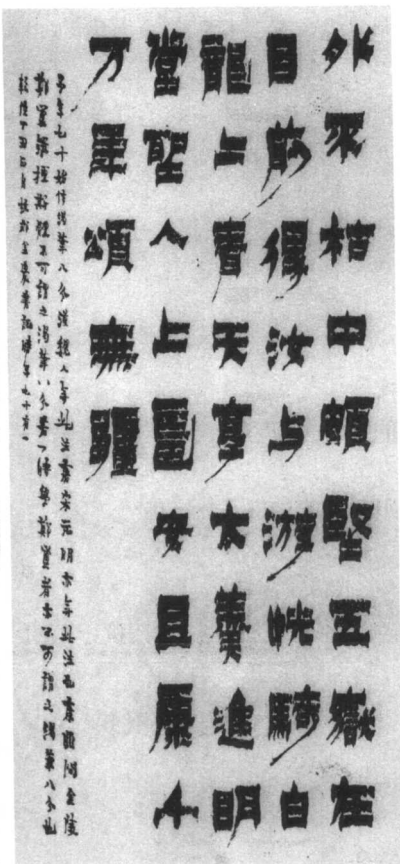 外不枯中頗堅五在
目前汝騎白
龍上天享太羹進明
堂聖人上壽安且康千
万年頌無疆
予年七十始作渴筆八分漢魏人無此法唐宋元明亦無此法也康熙間金陵
鄭簠雖擅斯體不可謂之渴筆八分若一時學鄭簠者亦不可謂之渴筆八分也
乾隆丁丑金農書記時年七十有一